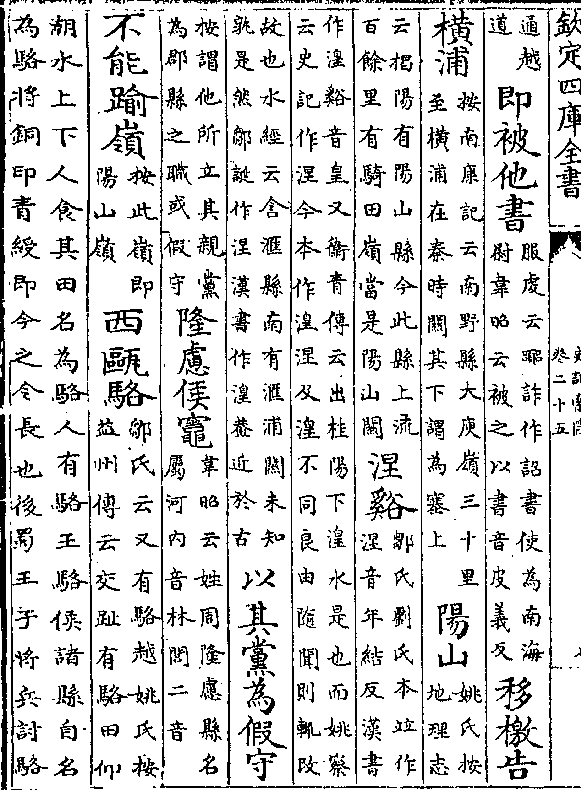 欽定四庫全書
史記索隱
卷二十五
通越
道
即被他書
服虔云耶詐作詔書使為南海
尉韋昭云被之以書音皮義反
移檄告
橫浦
按南康記云南野縣大庾嶺三十里
至橫浦在秦時關其下謂為塞上
陽山
姚氏按
地理志
云揭陽有陽山縣今此縣上流
百餘里有騎田嶺當是陽山關
涅谿
鄒氏劉氏本並作
涅音年結反漢書
作湟谿音皇又衛青傳云出桂陽下湟水是也而姚察
云史記作涅今本作湟涅及湟不同良由隨聞則輒改
故也水經云含滙縣南有滙浦關未知
孰是然鄒誕作涅漢書作湟蓋近於古
以其黨為假守
按謂他所立其親黨
為郡縣之職或假守
隆慮侯竈
韋昭云姓周隆慮縣名
屬河內音林閭二音
不能踰嶺
按此嶺即
陽山嶺
西甌駱
鄒氏云又有駱越姚氏按
益州傳云交趾有駱田仰
潮水上下人食其田名為駱人有駱王駱侯諸縣自名
為駱將銅印青綬即今之令長也後蜀王子將兵討駱